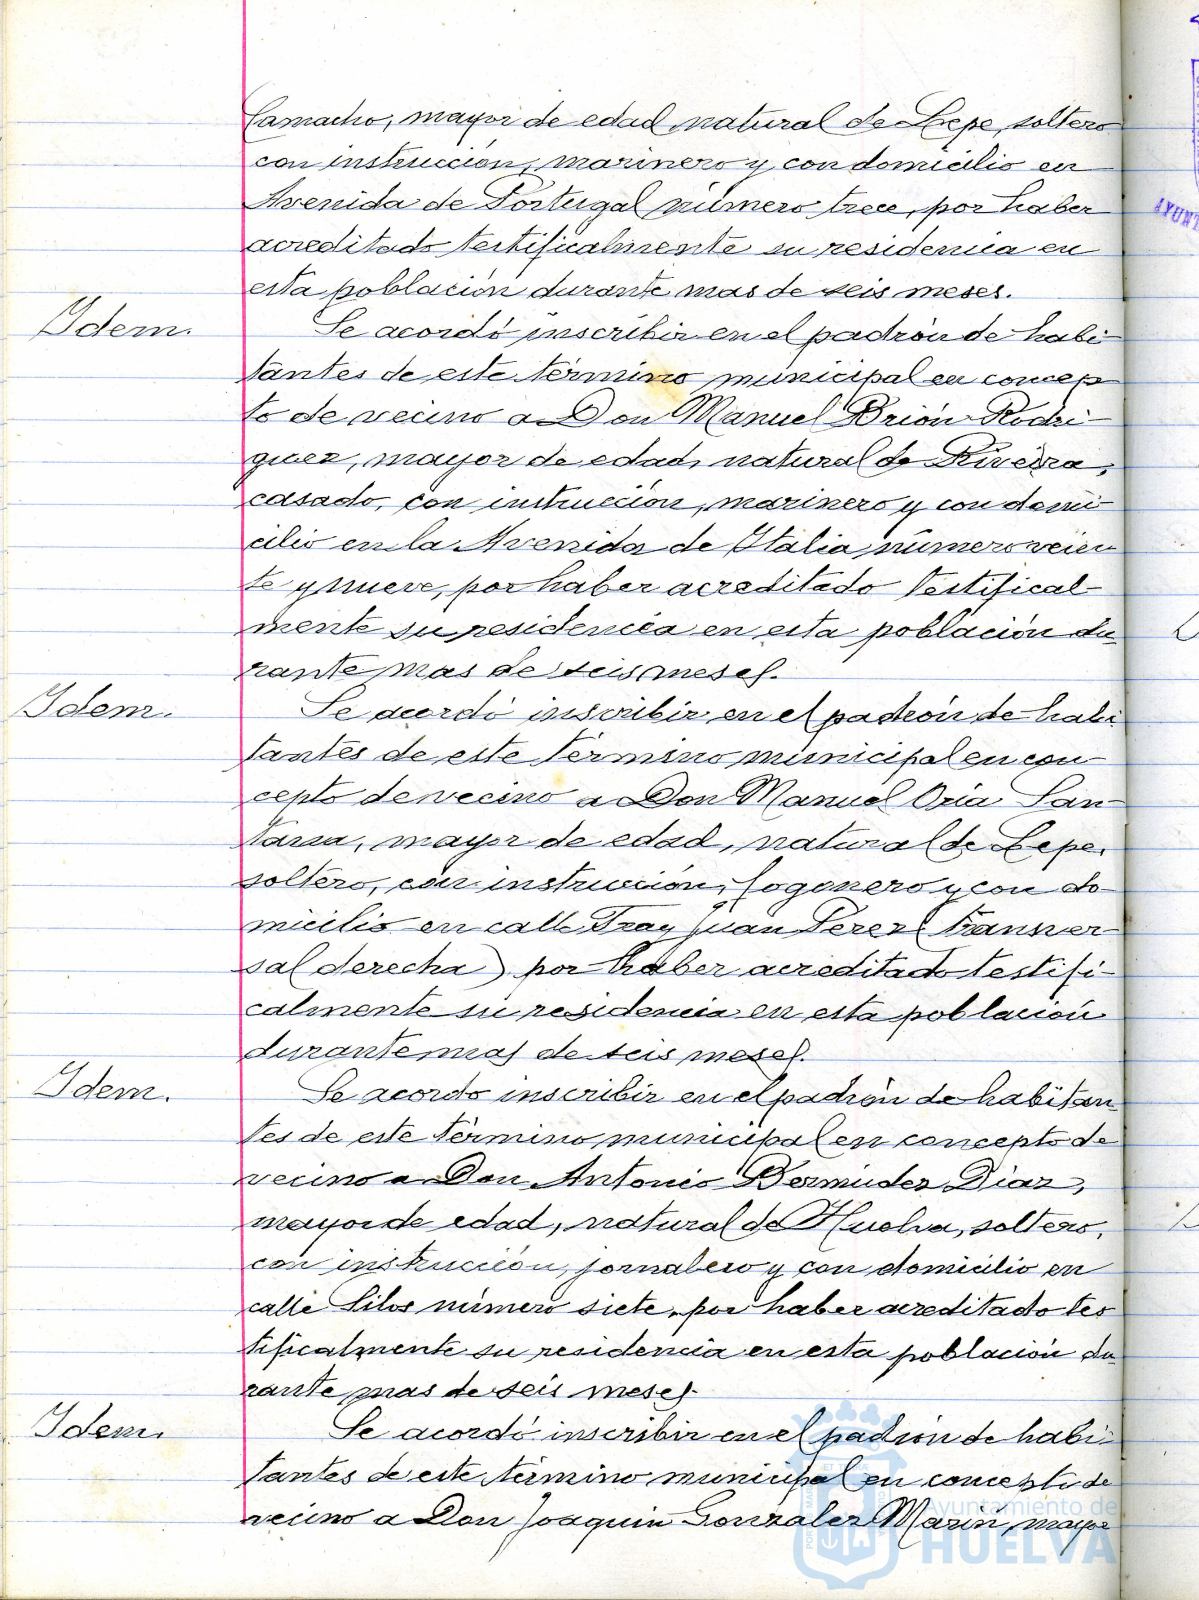 Camacho, mayor de edad, natural de Lepe, soltero
con instrucción, marinero y con domicilio en
Avenida de Portugal número trece, por haber
acreditado testificalmente su residencia en
esta población durante mas de seis meses.
Idem. Se acordó inscribir en el padrón de habi-
tantes de este término municipal en concep
to de vecino a Don Manuel Brión Rodri-
guez, mayor de edad, natural de Riveira,
casado, con instrucción, marinero y con domi
cilio en la Avenida de Italia número vein
te y nueve, por haber acreditado testifical-
mente su residencia en esta población du
rante mas de seis meses.
Idem. Se acordó inscribir en el padrón de habi
tantes de este término municipal en con-
cepto de vecino a Don Manuel Oria San-
tana, mayor de edad, natural de Lepe,
soltero, con instrucción, fogonero y con do-
micilio en calle Fray Juan Perez (transver
sal derecha) por haber acreditado testifi-
calmente su residencia en esta población
durante mas de seis meses.
Idem. Se acordo inscribir en el padrón de habitan
tes de este término municipal en concepto de
vecino a Don Antonio Bermudez Diaz,
mayor de edad, natural de Huelva, soltero,
con instrucción, jornalero y con domicilio en
calle Silos número siete, por haber acreditado tes
tificalmente su residencia en esta población du
rante mas de seis meses.
Idem. Se acordó inscribir en el padrón de habi-
tantes de este término municipal en concepto de
vecino a Don Joaquin Gonzalez Marin, mayor
Ayuntamiento de
HUELVA